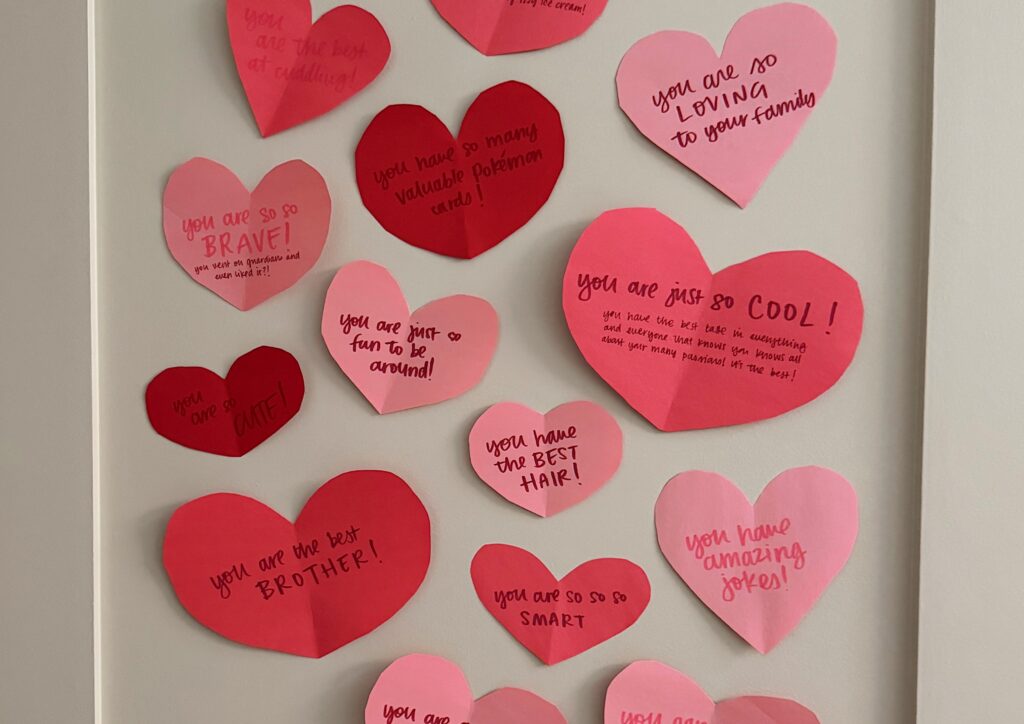 you
are the best
at cuddling!
ice cream!
you are so
LOVING
to your family
you have so many
valuable Pokémon
cards!
you are so so
BRAVE!
you went on guardians and
even liked it?!
you are just so COOL!
you have the best taste in everything
and everyone that knows you knows all
about your many passions! it's the best!
you are just so
fun to be
around!
you
are so
CUTE!
you have
the BEST
HAIR!
you are the best
BROTHER!
you are so so so
SMART
you have
amazing
jokes!
you are
you